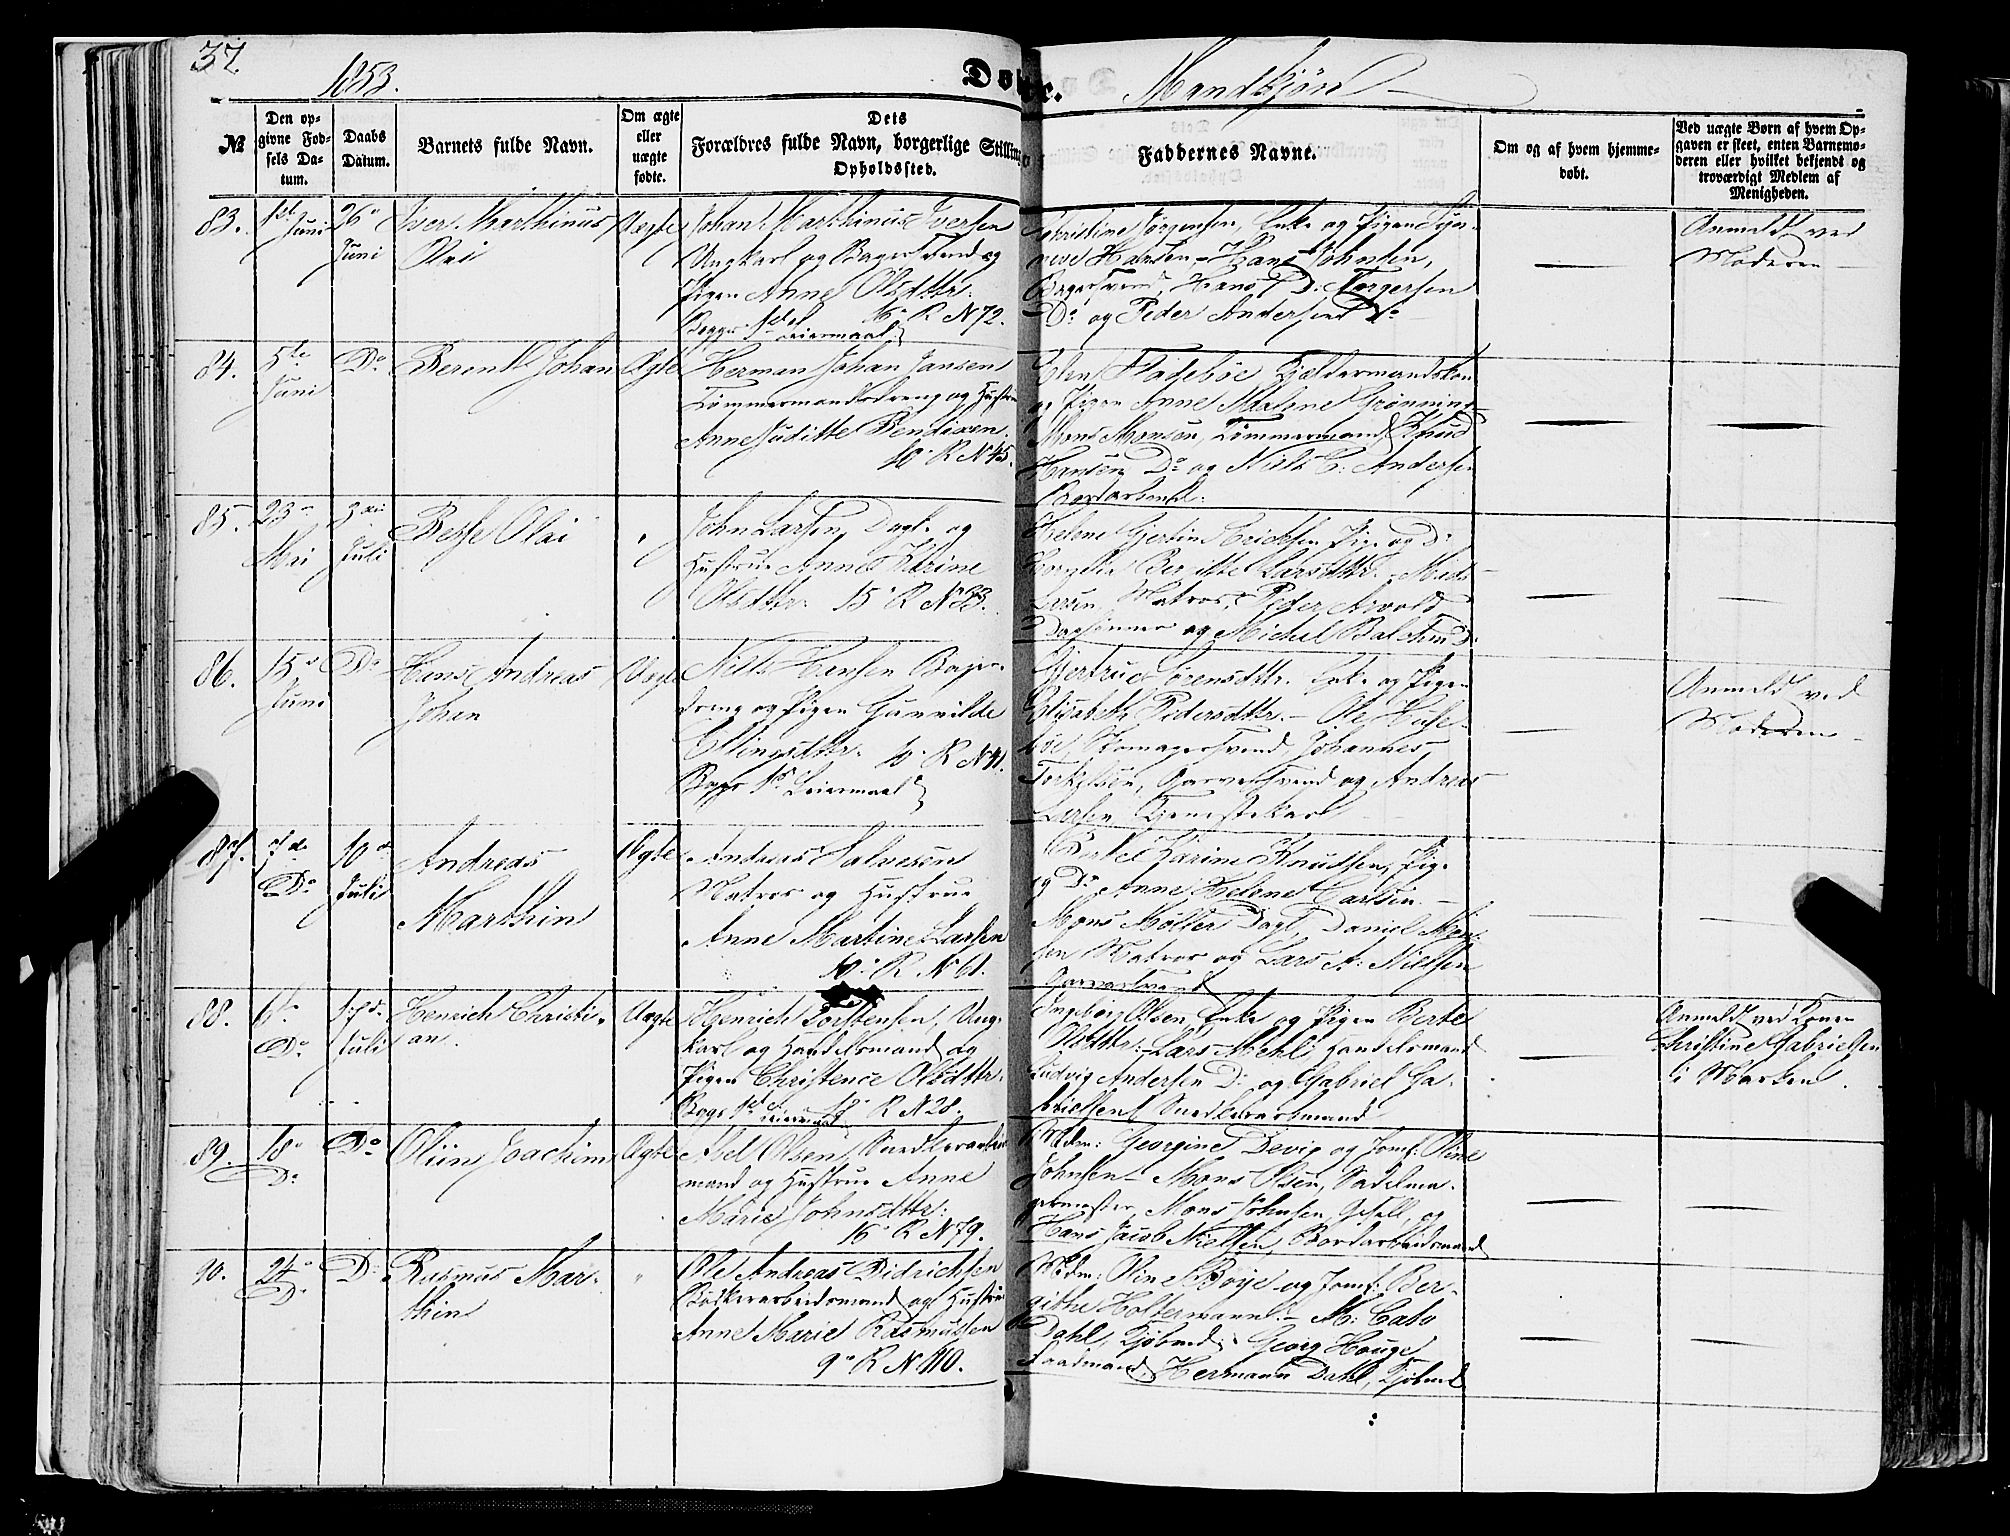 37.
1853.
Døbte. Mandkjøn
№
Den op-
givne Fød-
sels Da-
tum.
Daabs
Datum.
Barnets fulde Navn.
Om ægte
eller
uægte
fødte.
Dets
Forældres fulde Navn, borgerlige Stilling
Opholdssted.
Faddernes Navne.
Om og af hvem hjemme-
døbt.
Ved uægte Børn af hvem Op-
gaven er skeet, enten Barnemo-
deren eller hvilket bekjendt og
troværdigt Medlem af
Menigheden.
83.
1st Juni
26de
Juni
Iver Marthinus
Olai
Uægte
Johan Marthinus Iversen
Ungkarl og Bagersvend og
Pigen Anne Olsdttr.
16de R N 72.
Begges 1ste Leiermaal
Christine Jørgensen, Enke og Pigen Syn-
neve Hansen, - Hans Johnsen,
Bagersvend, Hans D. Torgersen
Do og Peder Andersen Do
Anmeldt ved
Moderen
84.
5te
Juni
Do
Berendt Johan
Ægte
Herman Johan Jansen
Tømmermandsdreng og Hustru
Anne Juditte Bendixen.
10de R N 45.
Elen Fladebøe
og Pigen Anne Malene Grønning
Mons Monsen, Tømmermand, Knud
Hansen Do og Niels C. Andersen
85.
23de
Mai
3die
Juli
Besse Olai
"
John Larsen, Dagl. og
Hustrue Anne Karine
Olsdttr. 15de R N 33.
Helene Gjertin Erichsen Pige og Do
Beritte Larsdttr. - Mads
Larsen, Matros, Peder Arvold
og Michel Balchen Do
86.
15de
Juni
Do
Hans Andreas
Johan
Uægte
Niels Hansen Bager-
dreng og Pigen Gunnilde
Ellingsdttr. 10de R N 41.
Begges 1ste Leiermaal
Gjertrud Sørensdttr. Enke og Pigen
Elisabeth Pedersdttr. - Ole Huse-
bøe, Skomagersvend, Johannes
Torkelsen, Garversvend og Andreas
Larsen Tjenestekarl
Anmeldt ved
Moderen
87.
7de
Do
10de
Juli
Andreas
Marthin
Ægte
Andreas Halvorsen
Matros og Hustrue
Anne Martine Larsen
10de R N 61.
Berthe Karine Knudsen, Pige
og Do Anne Helene Carlsen. -
Mons Møller Dagl, Daniel Mon-
sen Matros og Lars A. Nielsen
Garversvend
88.
6te
Do
17de
Juli
Henrich Christi-
an.
Uægte
Henrich Torstensen, Ung-
karl og Handelsmand og
Pigen Christence Olsdttr.
Begges 1ste Leiermaal 18de R N 28.
Ingebor Olsen Enke og Pigen Berte
Olsdttr. - Lars Mehl, Handelsmand
Ludvig Andersen Do og Gabriel Ga-
brielsen, Snedkerarbmand
Anmeldt ved Konen
Christine Gabrielsen
i Marken.
89.
18de
Do
Do
Oluin Joachim
Ægte
Abel Olsen, Snedkerarbeids-
mand og Hustrue Anne
Marie Johnsdttr.
16de R N 79.
Mdm: Georgine Devig og Jomf: Oline
Johnsen - Mons Olsen, Sadelma-
germester, Mons Johnsen, Gesell, og
Hans Jacob Nielsen, Bordarbeidsmand
90.
24de
Do
Do
Rasmus Mar-
thin
"
Ole Andreas Didrichsen
Bødkerarbeidsmand og Hustrue
Anne Marie Rasmussen
9de R N 110.
Mdm: Oline Boye og Jomf: Ber-
githe Holtermann. - M: Cato
Dahl, Kjøbmd, Georg Houge
Hermann Dahl, Kjøbmd